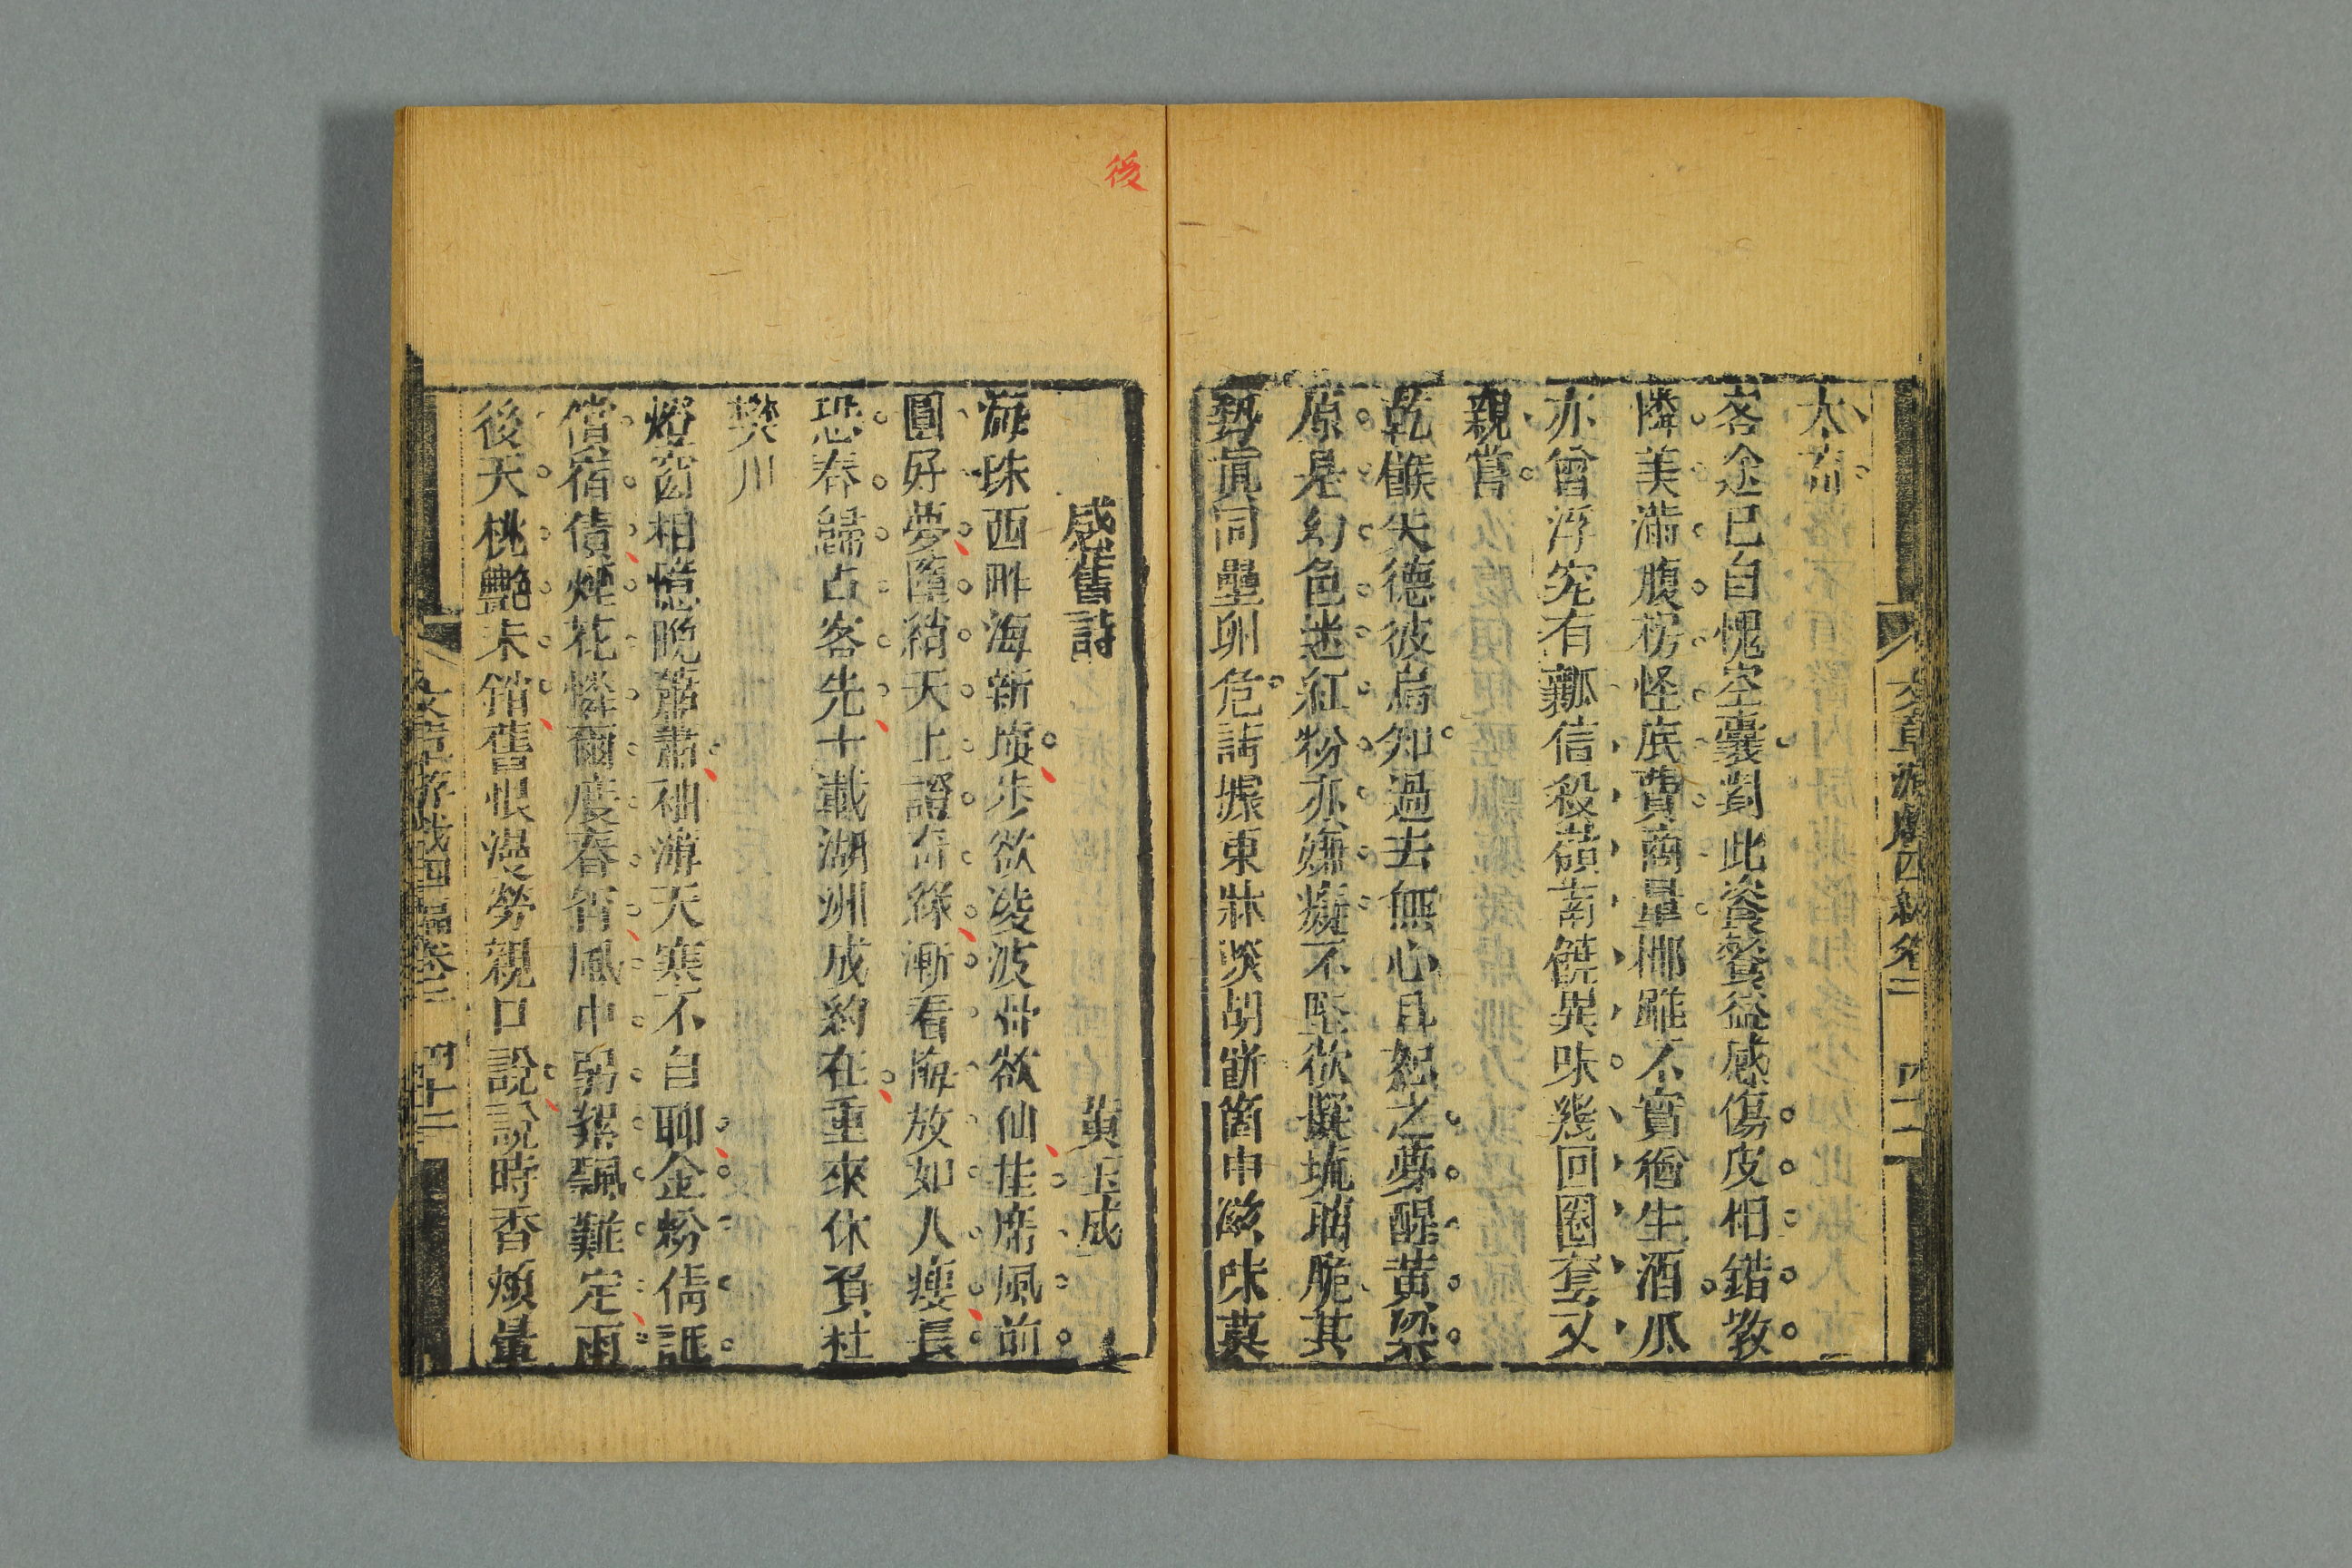 文章游戲四編卷三 四十一
太奇
客途已自愧空囊對此盤餐益感傷皮相錯教
憐美滿腹枵怪底費商量椰雖不實猶生酒瓜
亦曾浮究有瓤信殺嶺南饒異味幾回圈套又
親嘗
乾餱失德彼焉知過去無心且恕之夢醒黃粱
原是幻色迷紅粉亦嫌癡不堅欲擬琉璃脆其
勢眞同壘卵危請據東牀談胡餅箇中滋味莫
後
感舊詩 黃玉成
海珠西畔海新
步欲凌波骨欲仙佳席風前
圓好夢墮綃天上證奇緣漸看
放如人瘦長
恐春歸占客先十載湖洲成約在重來休負杜
樊川
燈窗相憶晚蕭蕭袖薄天寒不自聊金粉倩誰
償宿債煙花憐爾度春宵風中弱絮飄難定雨
後夭桃艷未銷舊恨漫勞親口說說時香頰暈
文章游戲四編卷三 四十二